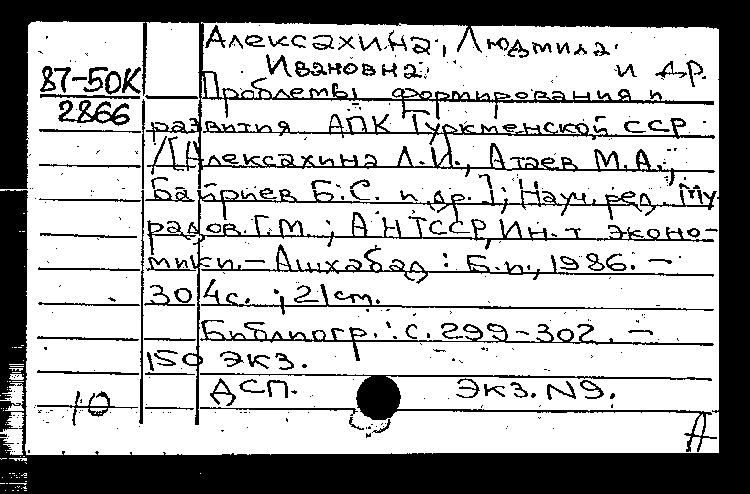 Алексахина, Людмила
Ивановна и др.
87-50К
2866
Проблемы формирования и
развития АПК Туркменской ССР
/[Алексахина Л.И., Атаев М.А.,
Байриев Б.С. и др.]; Науч. ред. Му-
радов Г.М.; АН ТССР, Ин-т эконо-
мики. – Ашхабад : Б.и., 1986. –
304с. ; 21 ст.
Библиогр.: с. 299-302. –
150 экз.
ДСП. Экз. N9.
10
А